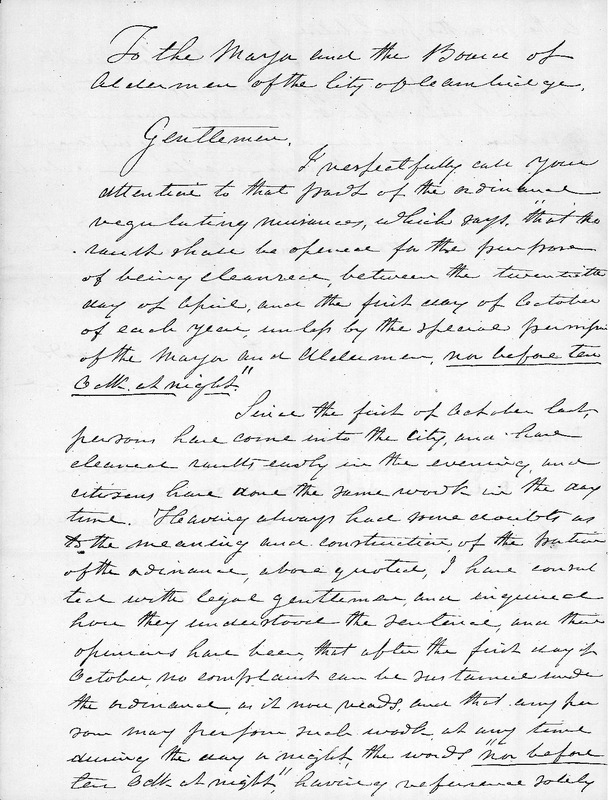 To the Mayor and the Board of
Aldermen of the City of Cambridge.
Gentlemen.
I respectfully call your
attention to that part of the ordinance
regulating nuisances, which says, "that no
vault shall be opened for the purpose
of being cleansed, between the twentieth
day of April, and the first day of October
of each year, unless by the special permission
of the Mayor and Aldermen, nor before ten
Oclk. at night."
Since the first of October last,
persons have come into the city, and have
cleaned vaults early in the evening, and
citizens have done the same work in the day
time. Having always had some doubts as
to the meaning and construction of the portion
of the ordinance, above quoted, I have consul
ted with legal gentlemen and inquired
how they understood the sentence, and their
opinions have been, that after the first day of
October, no complaint can be sustained under
the ordinance, as it now reads, and that any per
son may perform such work, at any time
during the day or night, the words "nor before
ten Oclk at night", having reference solely